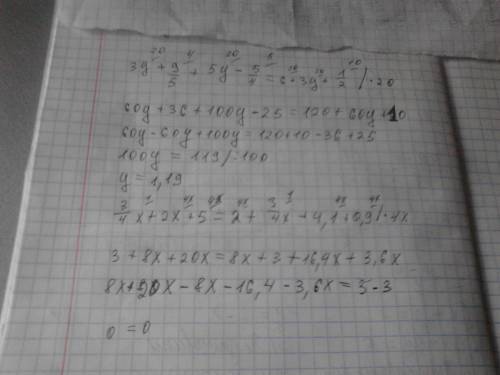 20 4 20 5 20 20 10
3y + 9/5 + 5y - 5/4 = 6 + 3y + 1/2 / · 20
60y + 36 + 100y - 25 = 120 + 60y + 10
60y - 60y + 100y = 120 + 10 - 36 + 25
100y = 119 / : 100
y = 1,19
3/4x + 2x + 5 = 2 + 3/4x + 4,1 + 0,9 / · 4x
3 + 8x + 20x = 8x + 3 + 16,4x + 3,6x
8x + 20x - 8x - 16,4 - 3,6x = 3 - 3
0 = 0